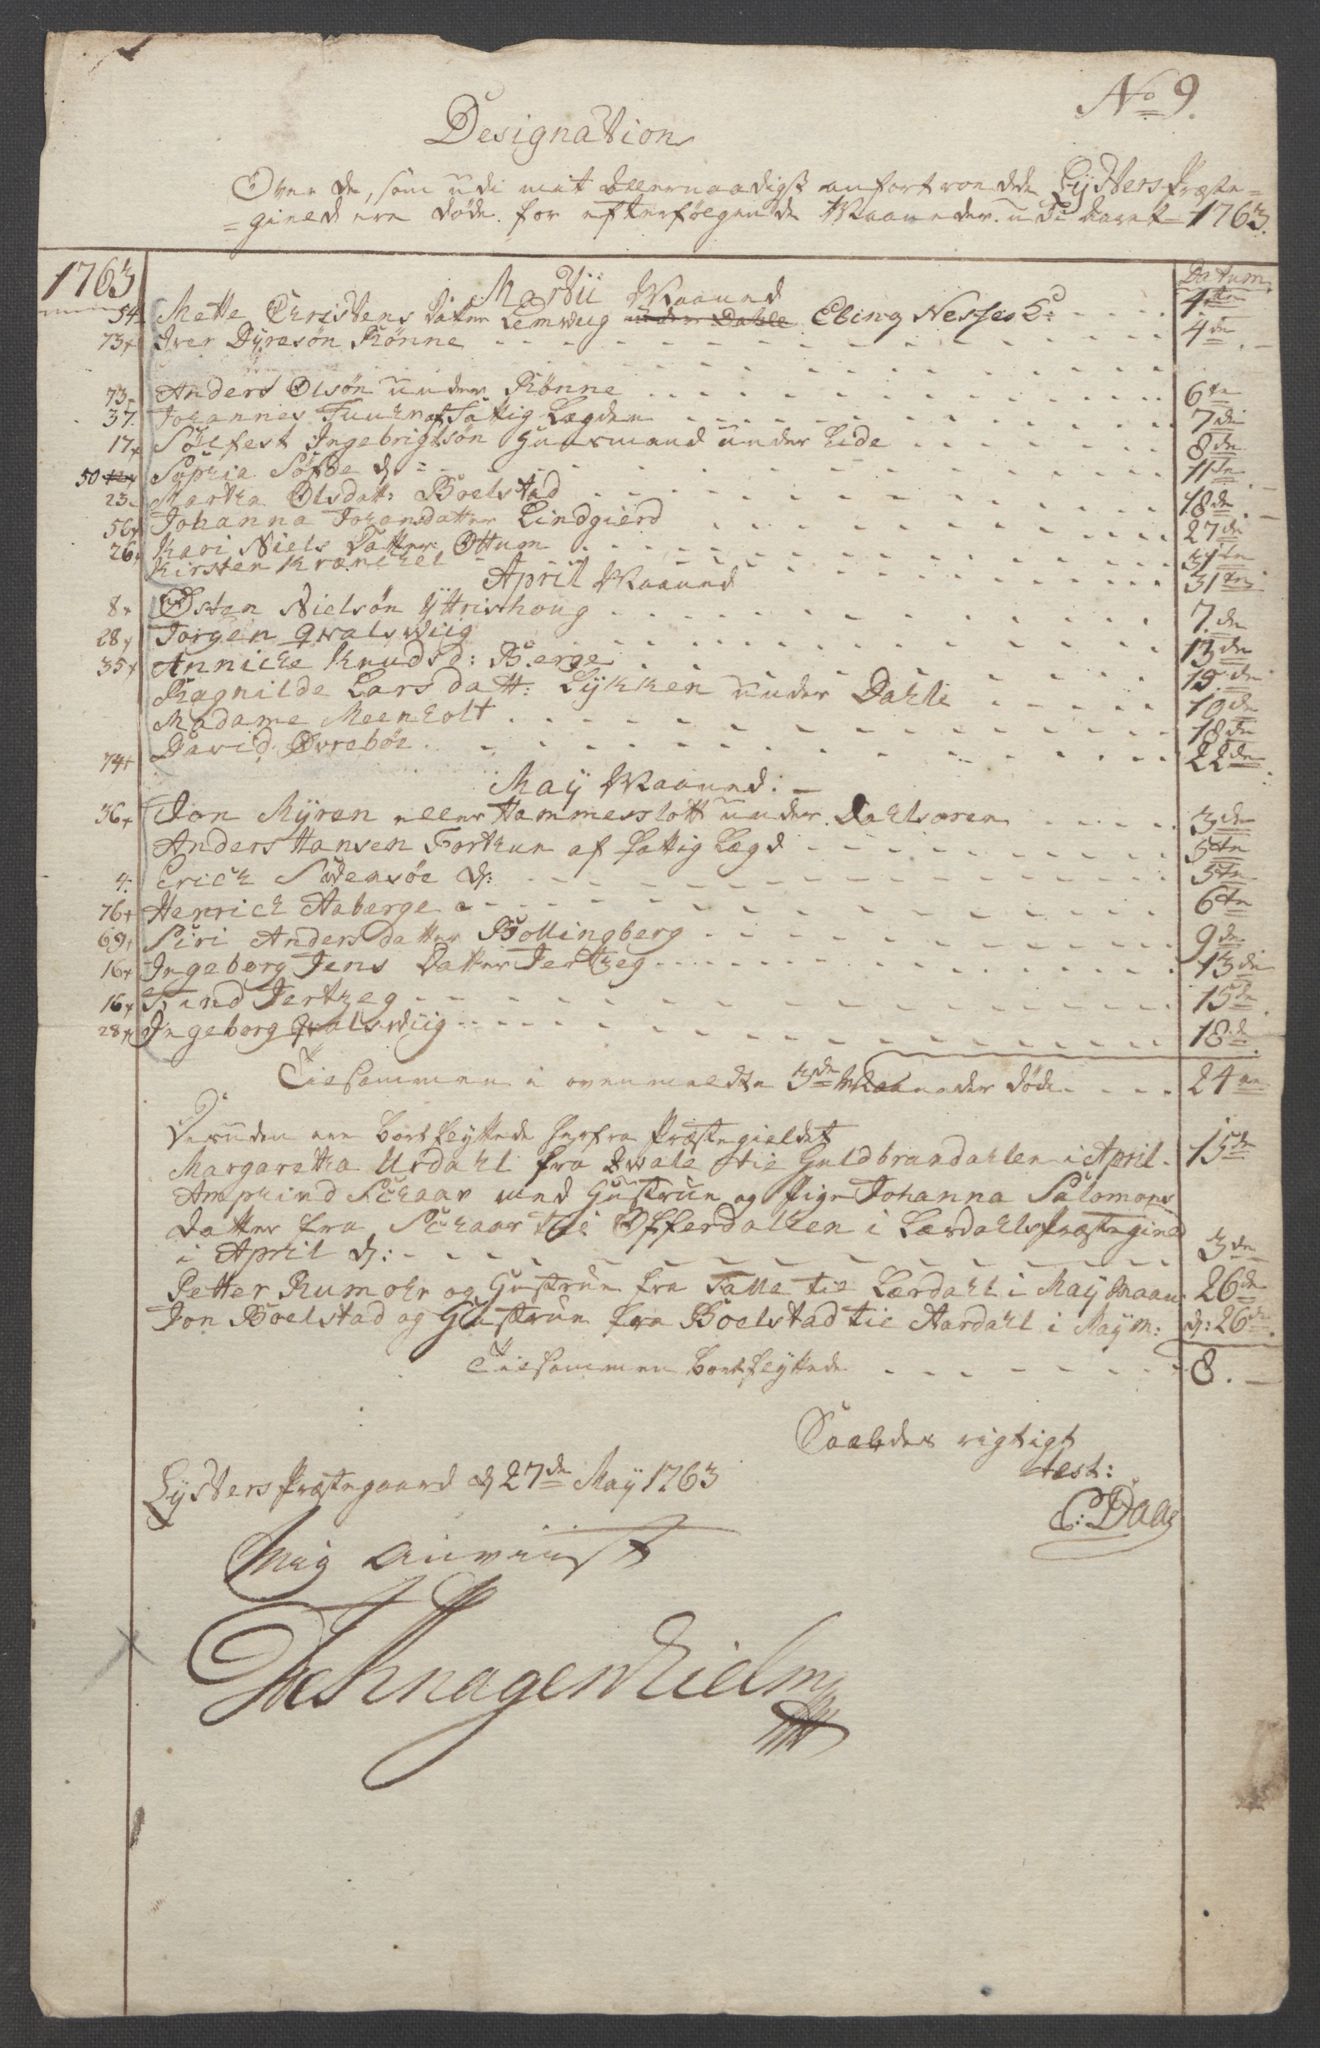 No 9.
Designation
Over de, som udi mit allernaadigst anfortroede Lysters Præste=
=gield ere døde for efterfølgende Maaneder udi Aaret 1763.
1763 Datum
Martii Maaned
54 Mette Christens Datter Lemwiig under Dahle Ebing Nesses E: 4de
73+ Iver Dyresøn Rønne 4de
73- Anders Olsøn under Rønne 6te
37. Johannes af Fattig Lægden 7de
17+ Sølfest Ingebrigtsøn Huusmand under Lide 8de
50 Sophia Søfde d 11te
23. Martha Olsdatt: Boelstad 18de
56+ Johanna Johansdatter Lindgierd 27de
26+ Kari Niels Datter Ottum 31te
Kirsten Kranchel 31te
April Maaned
8+ Østen Nielsøn Yttrishoug 7de
28+ Jørgen Qvalswiig 13de
35+ Anniche Knudsd: Berge 15de
Ragnilde Lars datt: Lykken under Dahle 19de
Madame Meenholt 18de
74+ David Øvrebøe 22de
May Maaned
36+ Jon Myren eller Hammerslott under Dahlsøren 3de
Anders Hansen Forthun af fattig Lægd 5te
4: Erich Sødensøe d: 5te
76+ Henrich Aaberge 6te
69+ Siri Anders datter Bollingberg 9de
16+ Ingeborg Jens Datter Jertzeg 13de
16+ Trind Jertzeg 15de
28+ Ingeborg Qvalswiig 18de
Tilsammen i ovenmeldte 3de Maaneder døde 24
Desuden ere bortflyttede herfra Præstegieldet
Margaretha Urdahl fra Qvale til Guldbrandahlen i April 15de
Amphind Schaar med Hustrue og Pige Johanna Salomons
datter fra Schaar til Offerdallen i Lærdahls Præstegield
i April d: 3de
Petter Rumohr og Hustrue fra Talle til Lærdahl i May Maan: 26de
Jon Boelstad og Hustrue fra Boelstad til Aardahl i May M: d: 26de
Tilsammen bortflyttede 8.
Saaledes rigtigt
test:
Lysters Præstegaard d 27de May 1763
C: Daae
Mig anviist
Knagenhielm